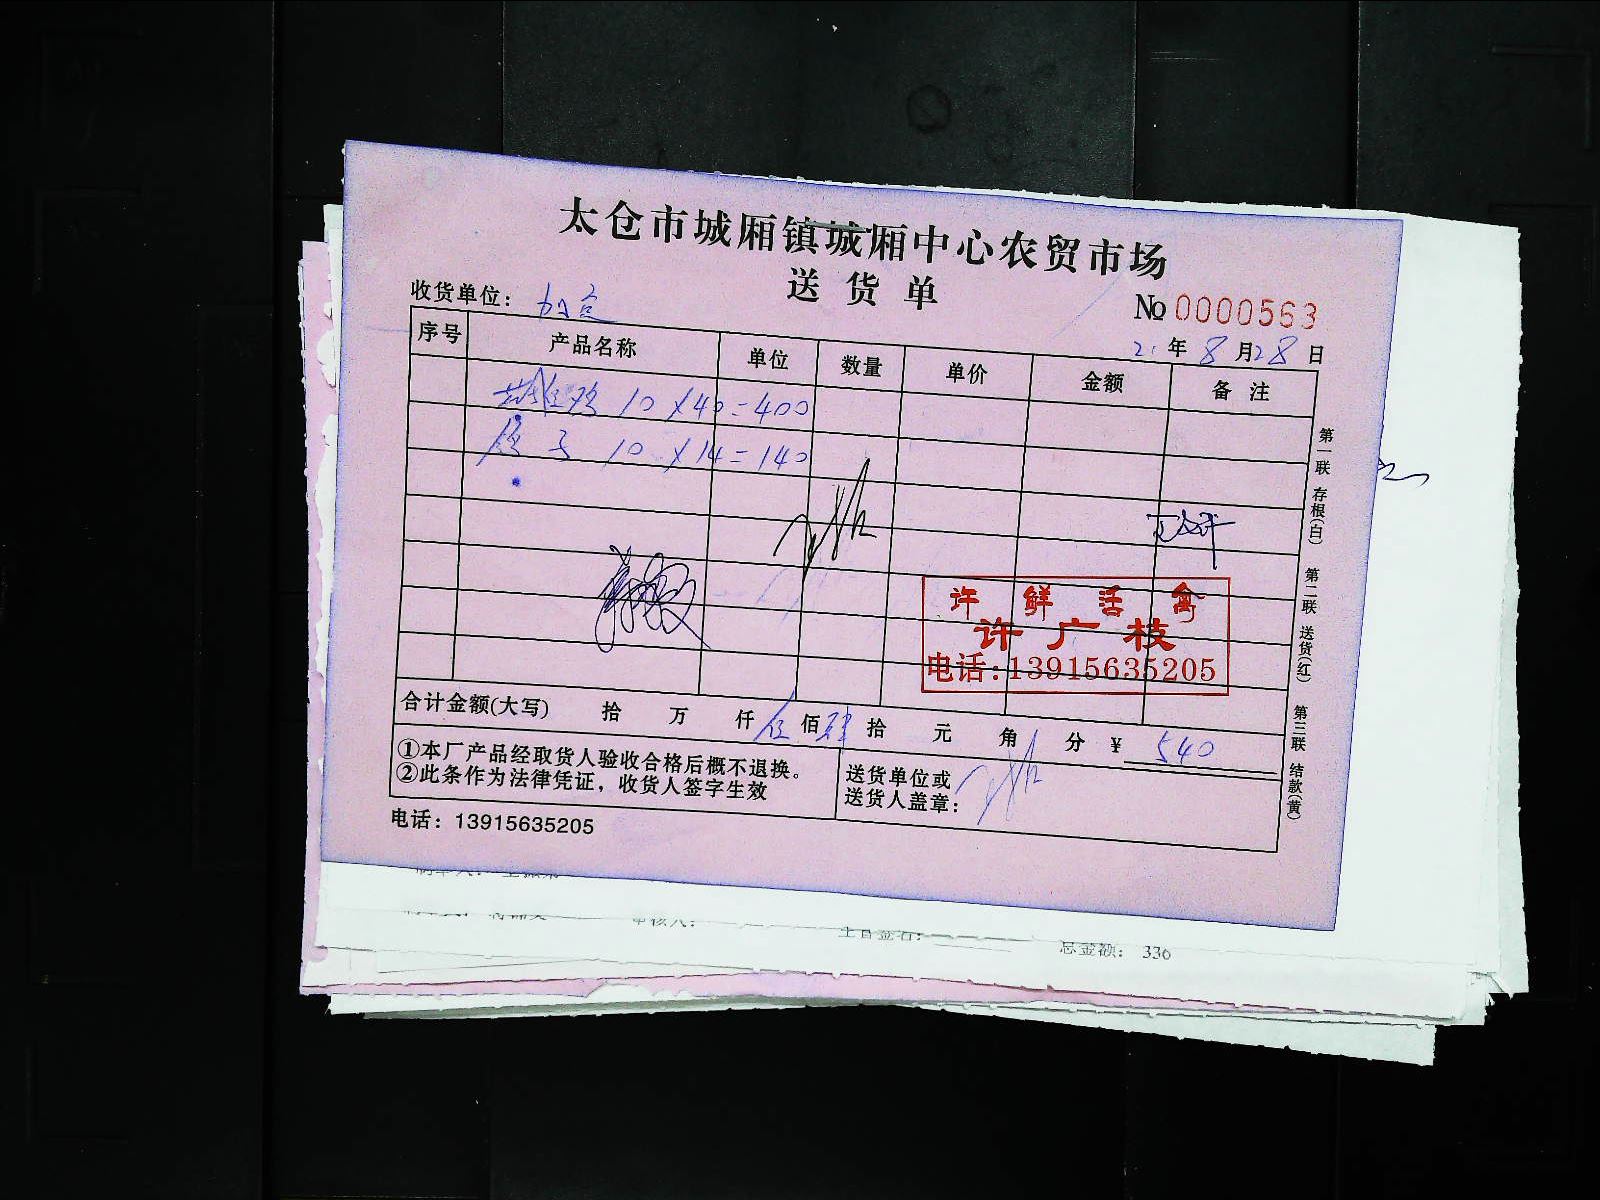 太仓市城厢镇城厢中心农贸市场
送货单
收货单位：
№ 0000563
21年8月28日
序号 产品名称 单位 数量 单价 金额 备注
10×40=400
子 10×14=140
第一联 存根(白) 第二联 送货(红) 第三联 结款(黄)
许鲜活禽
许广枝
电话:13915635205
合计金额(大写) 拾 万 仟 伍佰肆拾 元 角 分 ¥ 540
①本厂产品经取货人验收合格后概不退换。
②此条作为法律凭证，收货人签字生效
送货单位或
送货人盖章：
电话：13915635205
总金额： 336